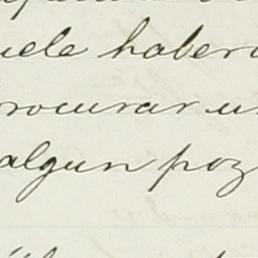 uele haber
procurar u
algun poz